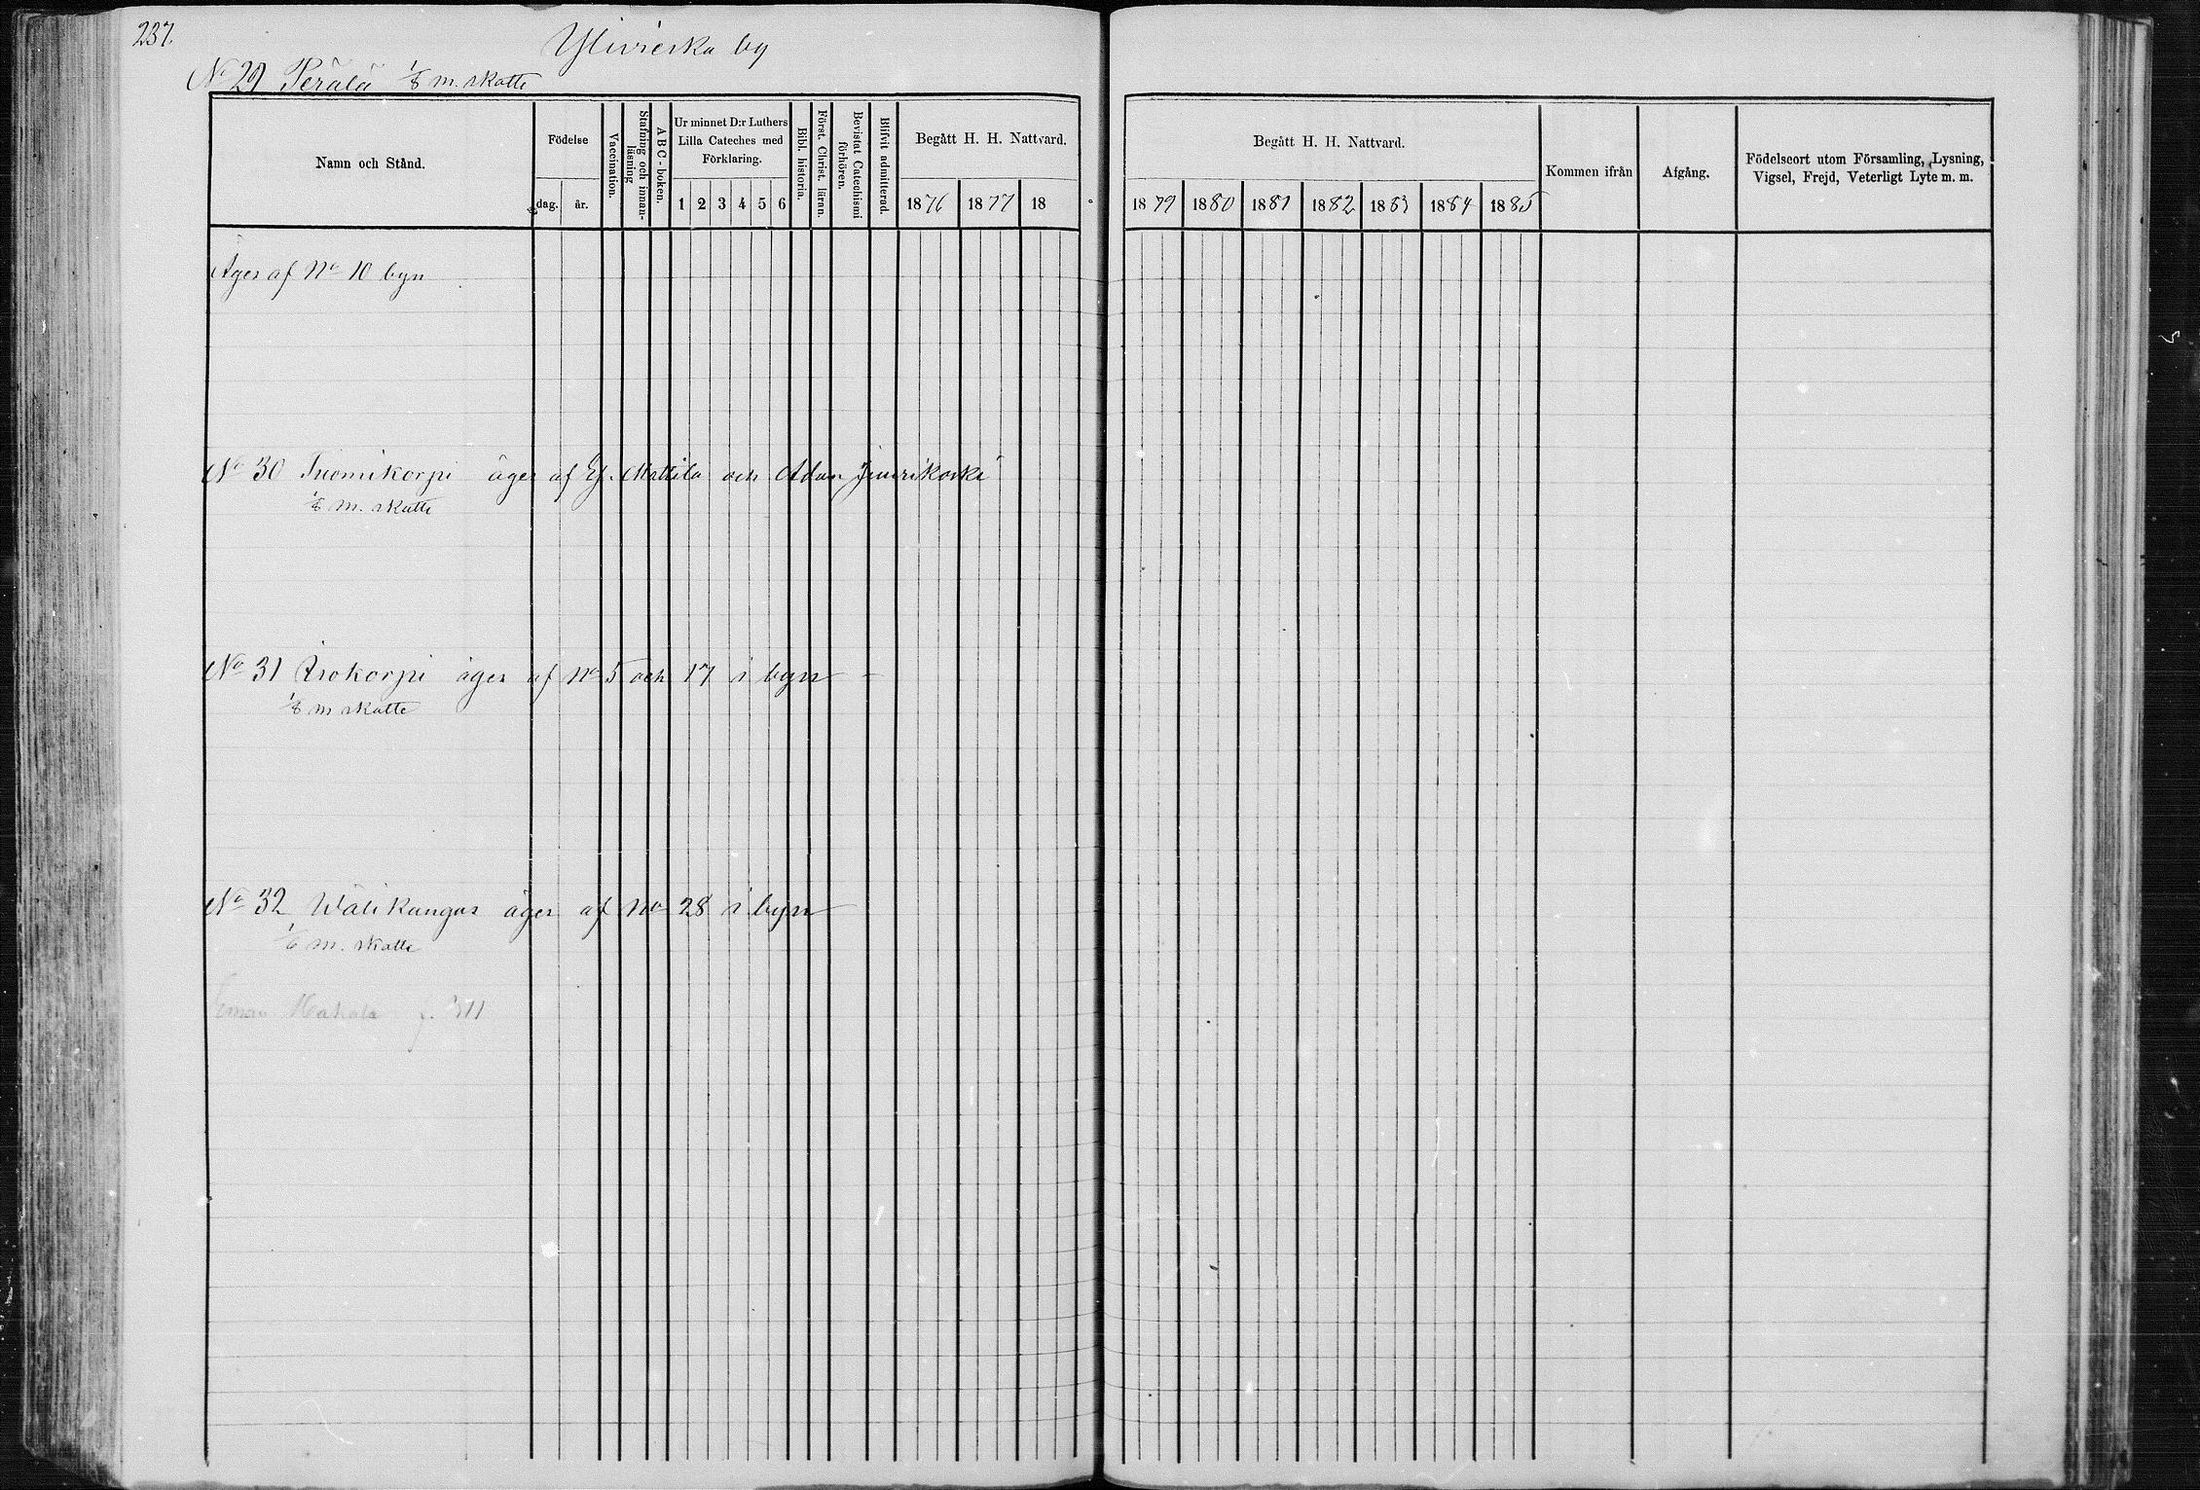 237.
Ylivieska by
No 29 Perälä 1/8 m. skatte
Namn och Stånd.
Födelse
dag. år.
Vaccination.
Stafning och innanläsning
ABC-boken.
Ur minnet D:r Luthers Lilla Cateches med Förklaring.
1 2 3 4 5 6
Bibl. historia.
Först. Christ. läran.
Bevistat Catechismi förhören.
Blifvit admitterad.
Begått H. H. Nattvard.
1876 1877 18
Begått H. H. Nattvard.
1879 1880 1881 1882 1883 1884 1885
Kommen ifrån
Afgång.
Födelseort utom Församling, Lysning, Vigsel, Frejd, Veterligt Lyte m. m.
Äges af No 10 byn
No 30 Tuomikorpi äges af Ef. Mattila och Adam
m. skatte
No 31 Isokorpi äges af No 5 och 17 i byn
1/8 m skatte
No 32 Wälikangas äges af No 28 i byn
m. skatte